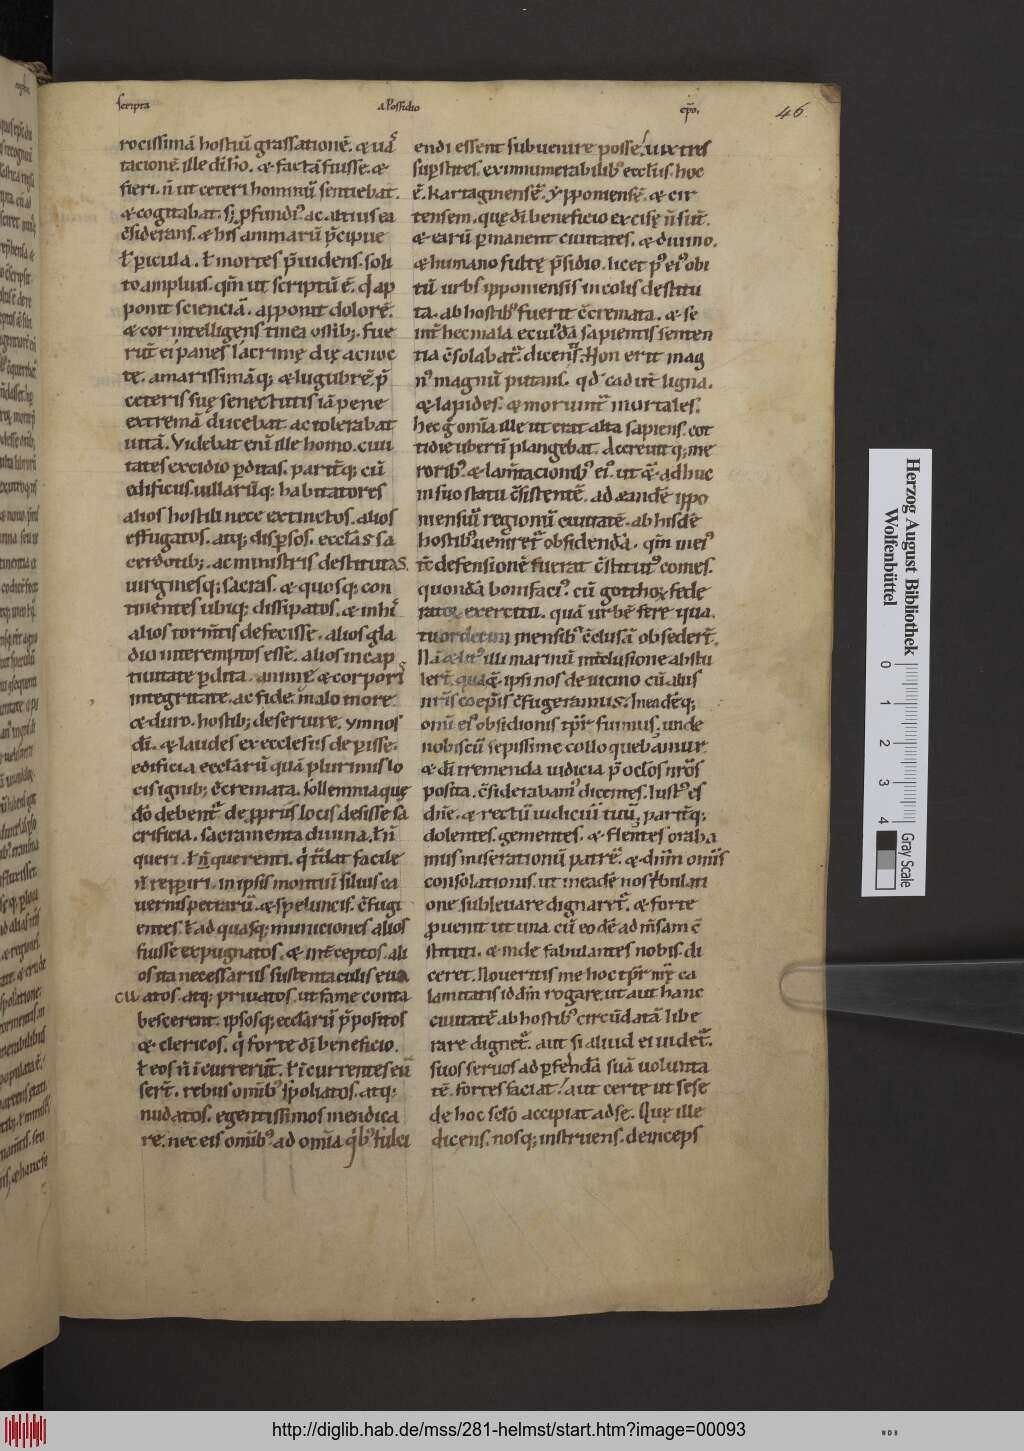 scripta a Possidio ep̄o. 46
rocissimā hostiū grassationē. & uastationē. ille dī h̄o. & factā fuisse. &
fieri. n̄ ut ceteri hominū sentiebat.
& cogitabat. sꝫ ꝓfundiꝰ ac altius ea
c̄siderans. & his animarū p̄cipue
ł ꝑicula. ł mortes p̄uidens. soli
to ampliꝰ. qm̄ ut scriptū ē. qđ ap
ponit scienciā. apponit dolorē.
& cor intelligens tinea ossibꝫ. fue
rūt ei panes lacrimę die ac noc
te. amarissimāqꝫ & lugubrē p̄
ceteris suę senectutis iā pene
extremā ducebat ac tolerabat
uitā. Videbat enī ille homo. ciui
tates excidio ꝑditas. parit̄qꝫ cū
edificiis uillarūqꝫ habitatores
alios hostili nece extinctos. alios
effugatos. atqꝫ disꝑsos. eccl̄as sa
cerdotibꝫ. ac ministris destitutas.
uirginesqꝫ sacras. & quosqꝫ con
tinentes ubiqꝫ dissipatos. & in hiis
alios torm̄tis defecisse. alios gla
dio interemptos esse. alios in cap
tiuitate ꝑdita. anime & corporis
integritate. ac fide. malo more
& duro. hostibꝫ deseruire. ymnos
dī. & laudes ex ecclesiis deperisse.
edificia eccl̄arū quā plurimis lo
cis ignibꝫ c̄cremata. sollemnia quę
dō debent̄ de ꝓpriis locis defisse sa
crificia. sacramenta diuina. ł n̄
queri. ł n̄ querenti. qⁱ t̄dat facile
n̄ reꝑiri. in ipsis montiū siluis ca
uernis petrarū. & speluncis. c̄fugi
entes. ł ad quasqꝫ municiones alios
fuisse expugnatos. & int̄ceptos. ali
os ita necessariis sustentaculis eua
cu atos. atqꝫ priuatos. ut fame conta
bescerent. ipsosqꝫ eccl̄arū p̄positos
& clericos. qⁱ forte dī beneficio.
ł eos n̄ īcurrerūt. ł īcurrentes eua
sert̄. rebus omībꝰ spoliatos. atqꝫ
nudatos. egentissimos mendica
re. nec eis omībꝰ ad omīa qⁱbꝰ fulci
endi essent subuenire posse. uix tres
sup̄stites. ex innumerabilibꝰ eccl̄iis. hoc
ē. kartaginensē. ypponiensē. & cir
tensem. quę dī beneficio excisę n̄ sūt.
& earū ꝑmanent ciuitates. & diuino.
& humano fultę p̄sidio. licet pꝰ eiꝰ obi
tū urbs ipponiensis incolis destitu
ta. ab hostibꝰ fuerit c̄cremata. & se
int̄ hec mala cuiꝰdā sapientis senten
tia c̄solabat̄. dicentis. Non erit mag
nꝰ magnū putans. qđ cadūt ligna.
& lapides. & moriunt̄ mortales.
hec g̊ omīa ille ut erat alta sapiens. cot
tidie ubertī plangebat. Accreuitqꝫ me
roribꝰ. & lam̄tacionibꝰ eiꝰ. ut & adhuc
in suo statu c̄sistentē. ad eandē ippo
niensiū regionū ciuitatē. ab hisdē
hostibꝰ uenīret̄ obsidenda. qm̄ in eiꝰ
t̄c defensionē fuerat c̄stitutꝰ comes.
quondā bonifaciꝰ. cū gotthoꝝ fede
ratoꝝ exercitu. quā urbē fere qua
tuordecim mensibꝰ c̄clusā obsedert̄.
Nā & litꝰ illi marinū int̄clusione abstu
lert̄. quā & ipsi nos de uicino cū aliis
nr̄is coep̄is c̄fugeramus. In eadēqꝫ
omī eiꝰ obsidionis tp̄r̄ fuimus. unde
nobiscū sepissime colloquebamur
& dī tremenda iudicia p̄ ocl̄os nr̄os
posita. c̄siderabamꝰ dicentes. Iustꝰ es
dn̄e. & rectū iudiciū tuū. parit̄qꝫ
dolentes. gementes. & flentes oraba
mus miserationū patrē. & dn̄m om̄is
consolationis. ut in eadē nos tbulati
one subleuare dignaret̄. & forte
ꝓuenit ut una. cū eodē ad m̄sam c̄
stituti. & inde fabulantes nobis. di
ceret. Noueritis me hoc tp̄r nr̄e ca
lamitatis id dm̄ rogare. ut aut hanc
ciuitatē ab hostibꝰ circūdatā libe
rare dignet̄. aut si aliud ei uidet̄.
suos seruos ad ꝑferendā suā uolunta
tē. fortes faciat. aut certe ut sese
de hoc sc̄lo accipiat ad se. Que ille
dicens. nosqꝫ instruens. deinceps
Herzog August Bibliothek
Wolfenbüttel
0 1 2 3 4
Gray Scale
http://diglib.hab.de/mss/281-helmst/start.htm?image=00093